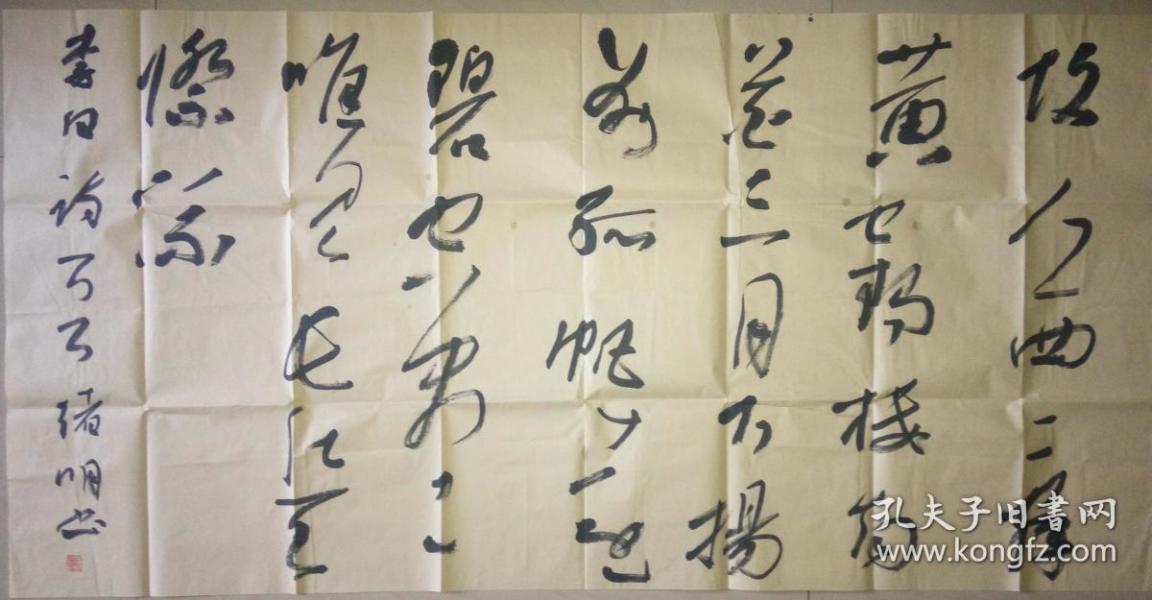 故人西辭
黄鶴樓煙
花三月下揚
州孤帆遠影
碧空盡
唯見長江天
際流
李白詩 緒明書
孔夫子旧书网
www.kongfz.com